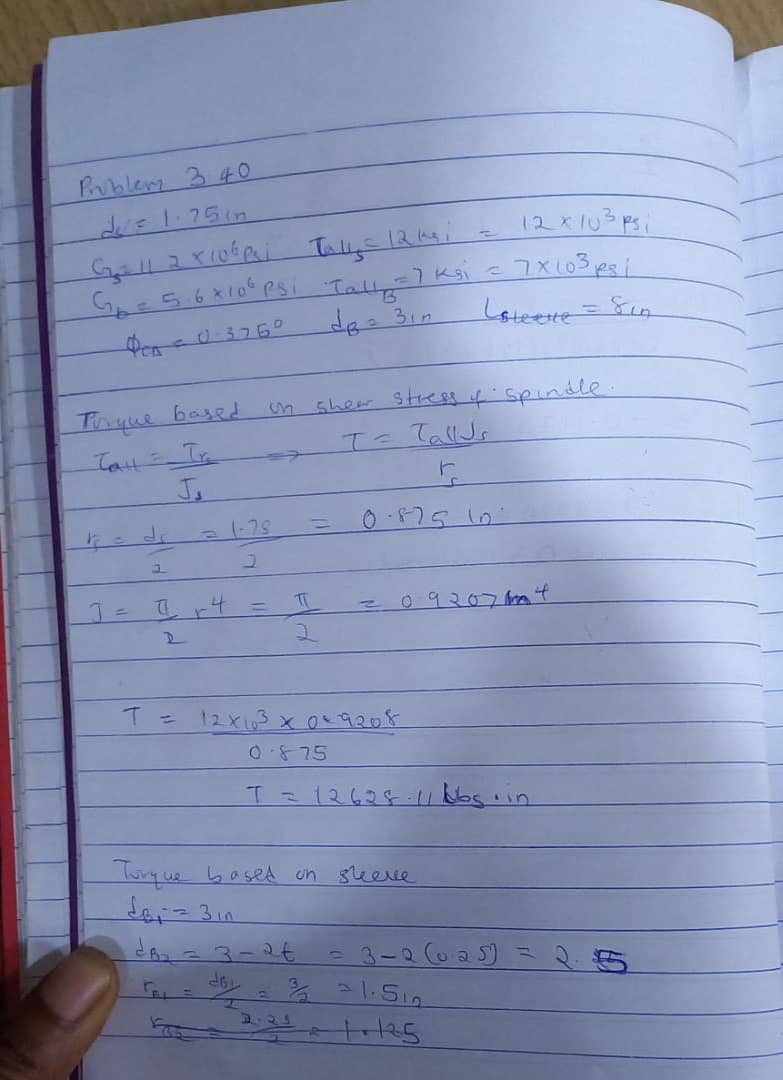 Problem 3.40
ds = 1.75in
Gs = 11.2 x 10⁶ psi τall s = 12 ksi = 12 x 10³ psi
Gb = 5.6 x 10⁶ psi τall B = 7 ksi = 7 x 10³ psi
φCA = 0.375° dB = 3in Lsleeve = 8in
Torque based on shear stress of spindle.
τall = Trs/Js ⇒ T = τall Js/rs
rs = ds/2 = 1.75/2 = 0.875 in
J = π/2 r⁴ = π/2 = 0.9207 in⁴
T = 12x10³ x 0.9208/0.875
T = 12628.11 lbs.in
Torque based on sleeve
dB1 = 3in
dB2 = 3 - 2t = 3 - 2(0.25) = 2.5
rB1 = dB1/2 = 3/2 = 1.5in
rB2 = 2.25/2 = 1.125